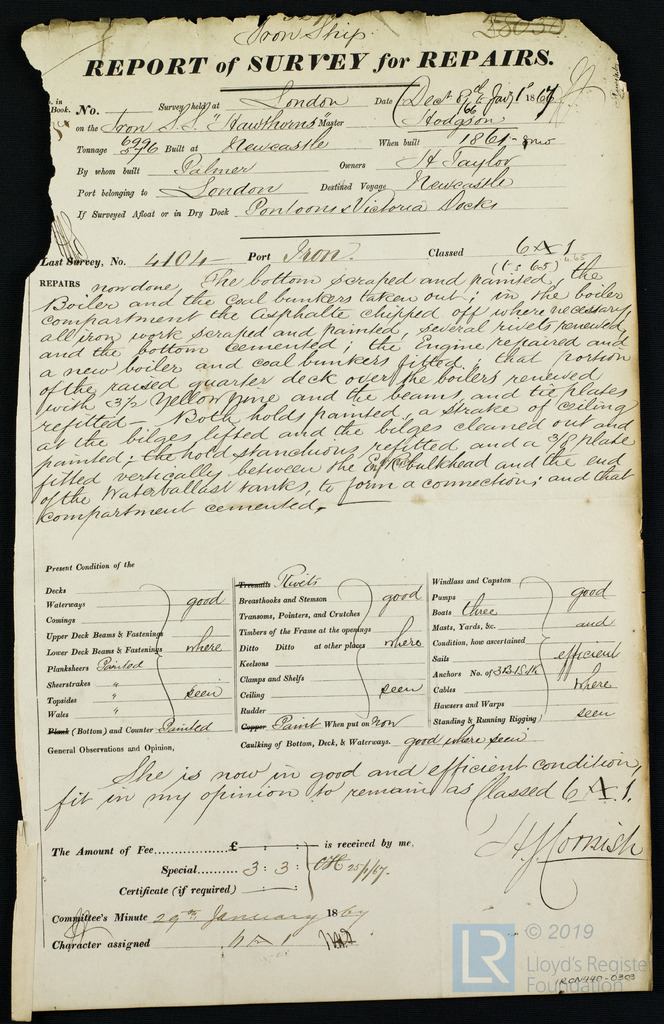 Iron Ship
REPORT of SURVEY for REPAIRS.
in Book. No. Survey held at London Date Dec 8th 66 & Jany 1st 1867
on the Iron S.S. "Hawthorns" Master Hodgson
Tonnage 699 576 Built at Newcastle When built 1861 - 8mo
By whom built Palmer Owners H Taylor
Port belonging to London Destined Voyage Newcastle
If Surveyed Afloat or in Dry Dock Pontoons & Victoria Docks
Last Survey, No. 4104 Port Iron. Classed 6 A 1
(t.s. 65) 4.65
REPAIRS now done, The bottom scraped and painted, the
Boiler and the Coal bunkers taken out; in the boiler
compartment the asphalte chipped off where necessary,
all iron work scraped and painted, several rivets renewed,
and the bottom cemented; the Engine repaired and
a new boiler and coal bunkers fitted; that portion
of the raised quarter deck over the boilers renewed
with 3½ Yellow pine and the beams and tie plates
refitted – Both holds painted, a strake of ceiling
at the bilges lifted and the bilges cleaned out and
painted; the hold stanchions refitted and a 3/8 plate
fitted vertically between the bulkhead and the end
of the Waterballast tanks, to form a connection; and that
compartment cemented.
Present Condition of the
Decks
Waterways good
Comings
Upper Deck Beams & Fastenings
Lower Deck Beams & Fastenings where
Planksheers Painted
Sheerstrakes "
Topsides " seen
Wales "
Plank (Bottom) and Counter Painted
Treenails Rivets
Breasthooks and Stemson good
Transoms, Pointers, and Crutches
Timbers of the Frame at the openings
Ditto Ditto at other places where
Keelsons
Clamps and Shelfs
Ceiling seen
Rudder
Copper Paint When put on Now
Windlass and Capstan
Pumps good
Boats three
Masts, Yards, &c. and
Condition, how ascertained
Sails efficient
Anchors No. of 3B.1S.1K
Cables where
Hawsers and Warps
Standing & Running Rigging seen
General Observations and Opinion,
Caulking of Bottom, Deck, & Waterways. good where seen
She is now in good and efficient condition,
fit in my opinion to remain as Classed 6 A 1.
H J Cornish
The Amount of Fee £ : : is received by me,
Special 3 : 3 : CH 25/1/67.
Certificate (if required) : :
Committee's Minute 29th January 1867
Character assigned 6 A 1
LR
© 2019
Lloyd's Register
Foundation
IRON440-0303